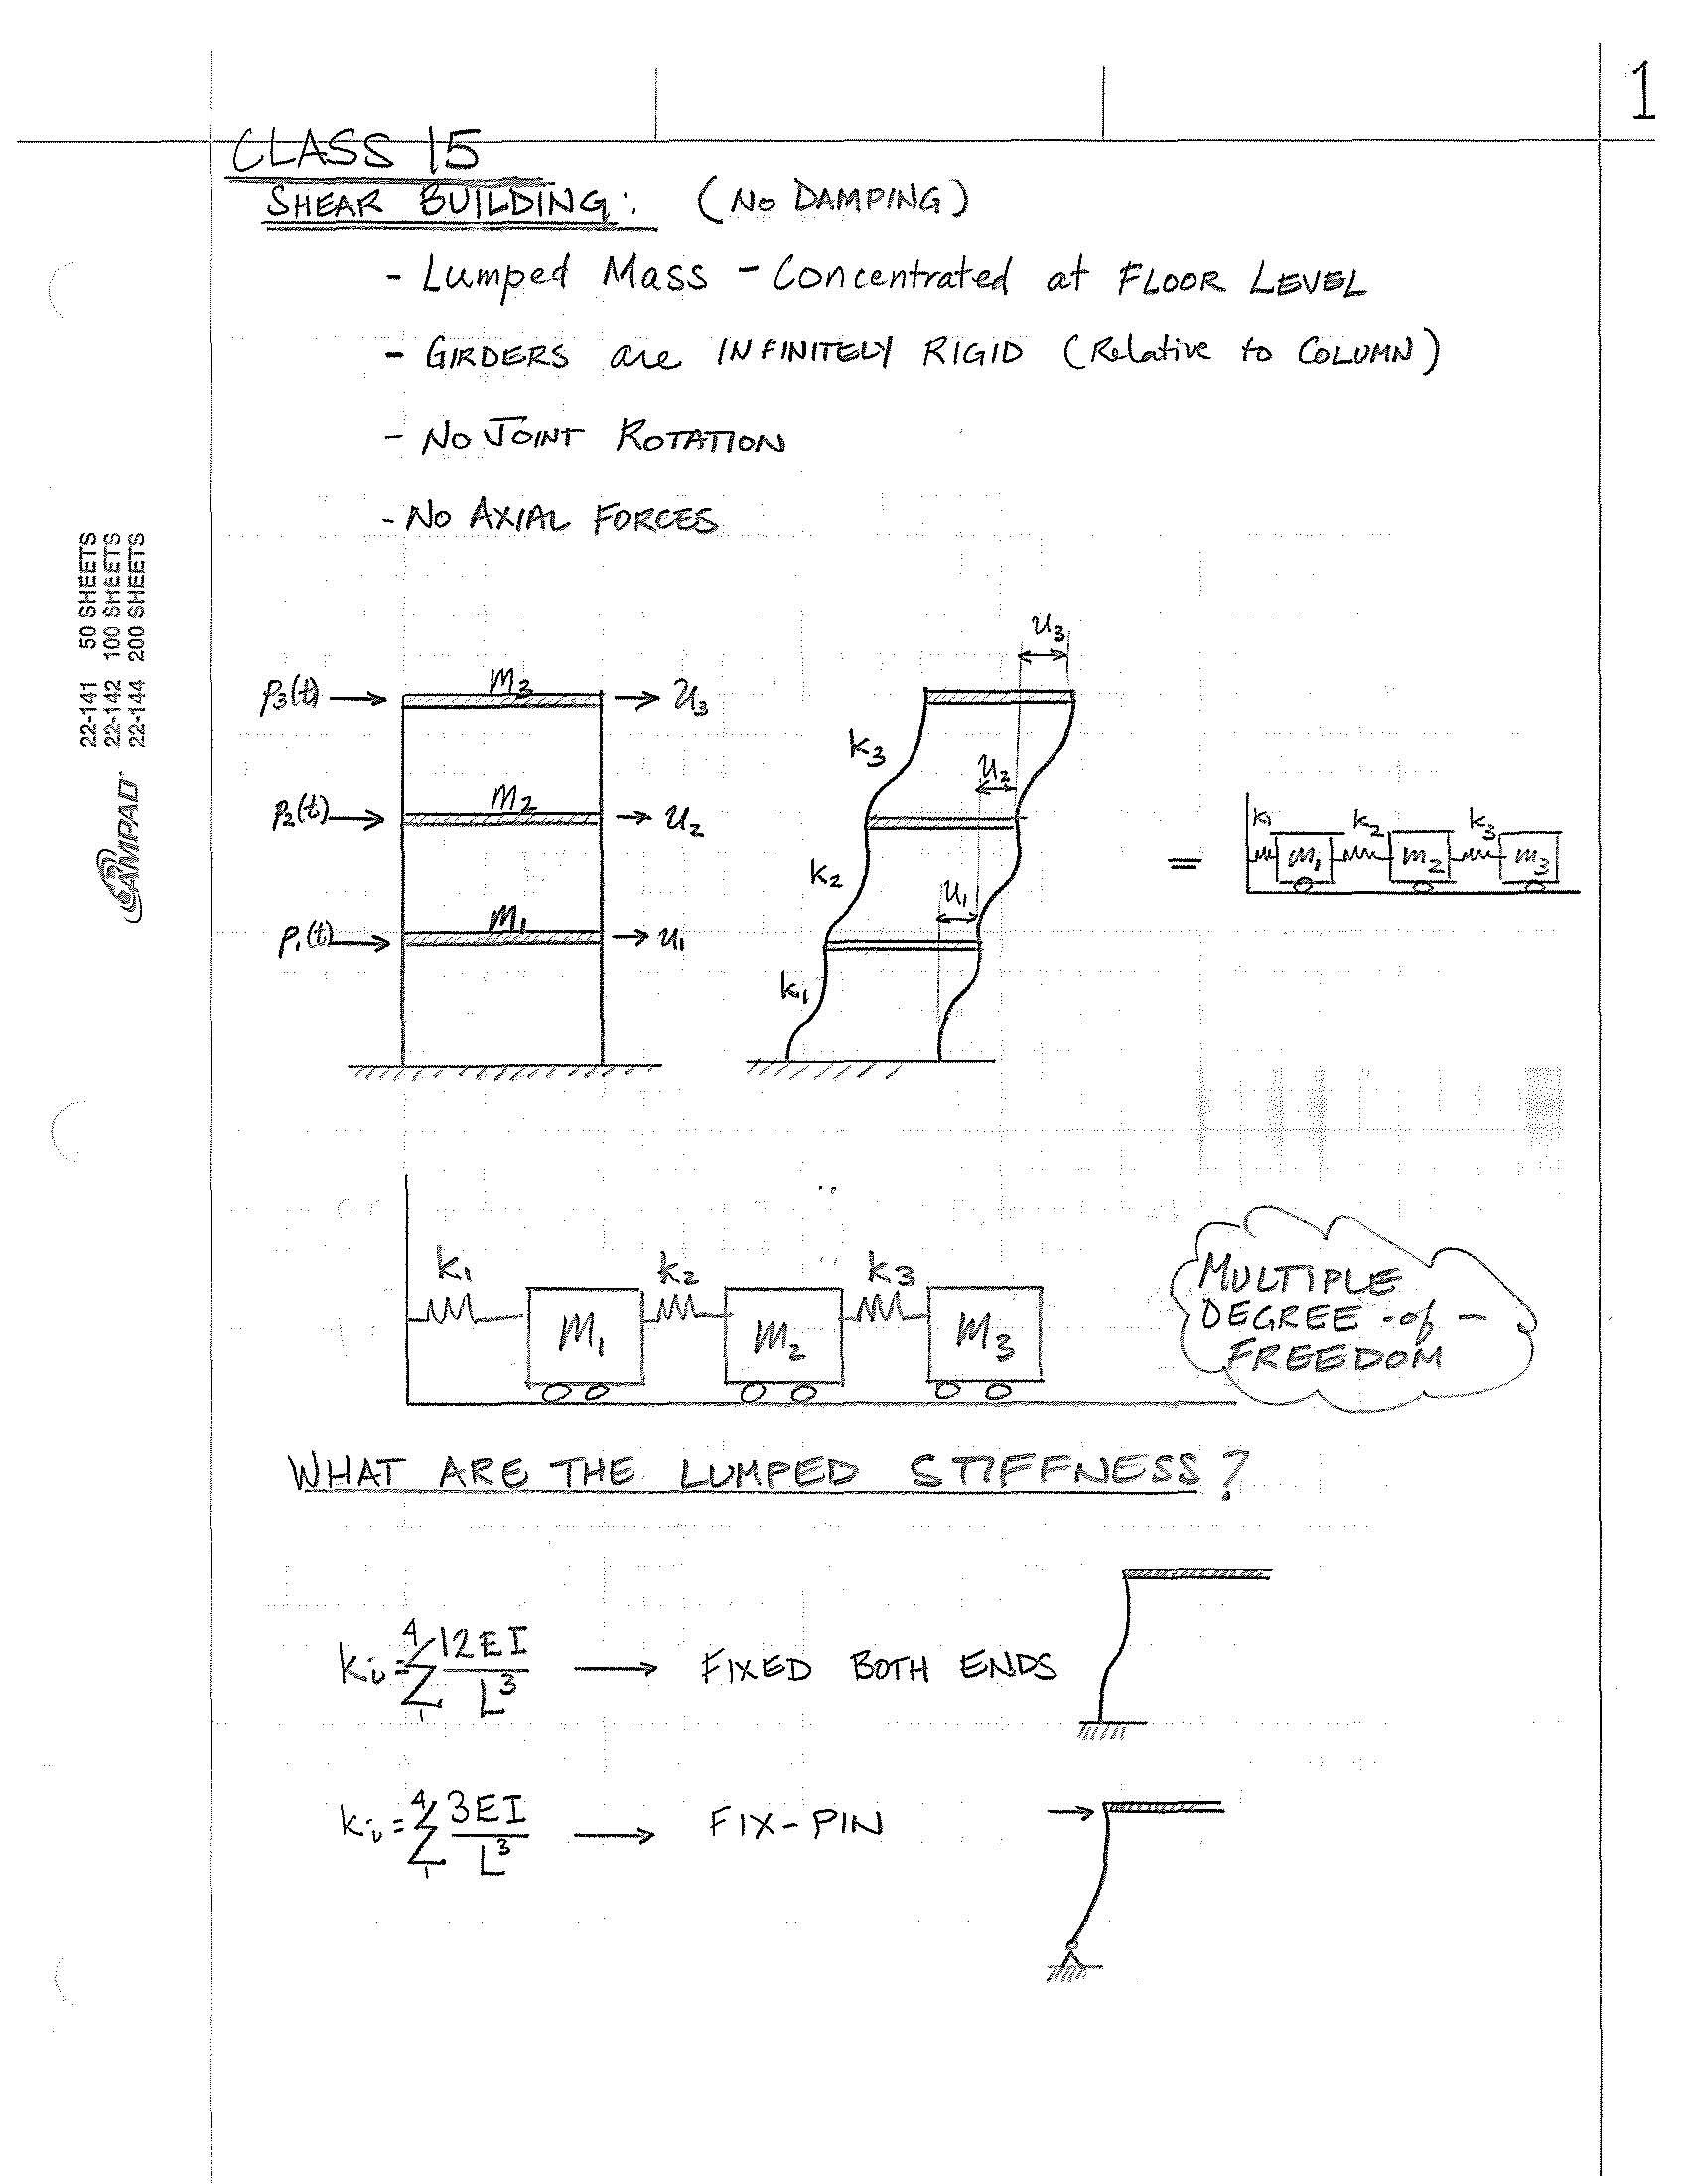 1
CLASS 15
SHEAR BUILDING: (NO DAMPING)
- Lumped Mass - Concentrated at FLOOR LEVEL
- GIRDERS are INFINITELY RIGID (Relative to COLUMN)
- NO JOINT ROTATION
- NO AXIAL FORCES
22-141 50 SHEETS
22-142 100 SHEETS
22-144 200 SHEETS
AMPAD
p3(t) m3 u3
p2(t) m2 u2
p1(t) m1 u1
u3
k3
u2
k2
u1
k1
=
k1 k2 k3
m1 m2 m3
k1 k2 k3
m1 m2 m3
MULTIPLE
DEGREE -of-
FREEDOM
WHAT ARE THE LUMPED STIFFNESS?
ki = 4Σ1 12EI/L³ → FIXED BOTH ENDS
ki = 4Σ1 3EI/L³ → FIX-PIN